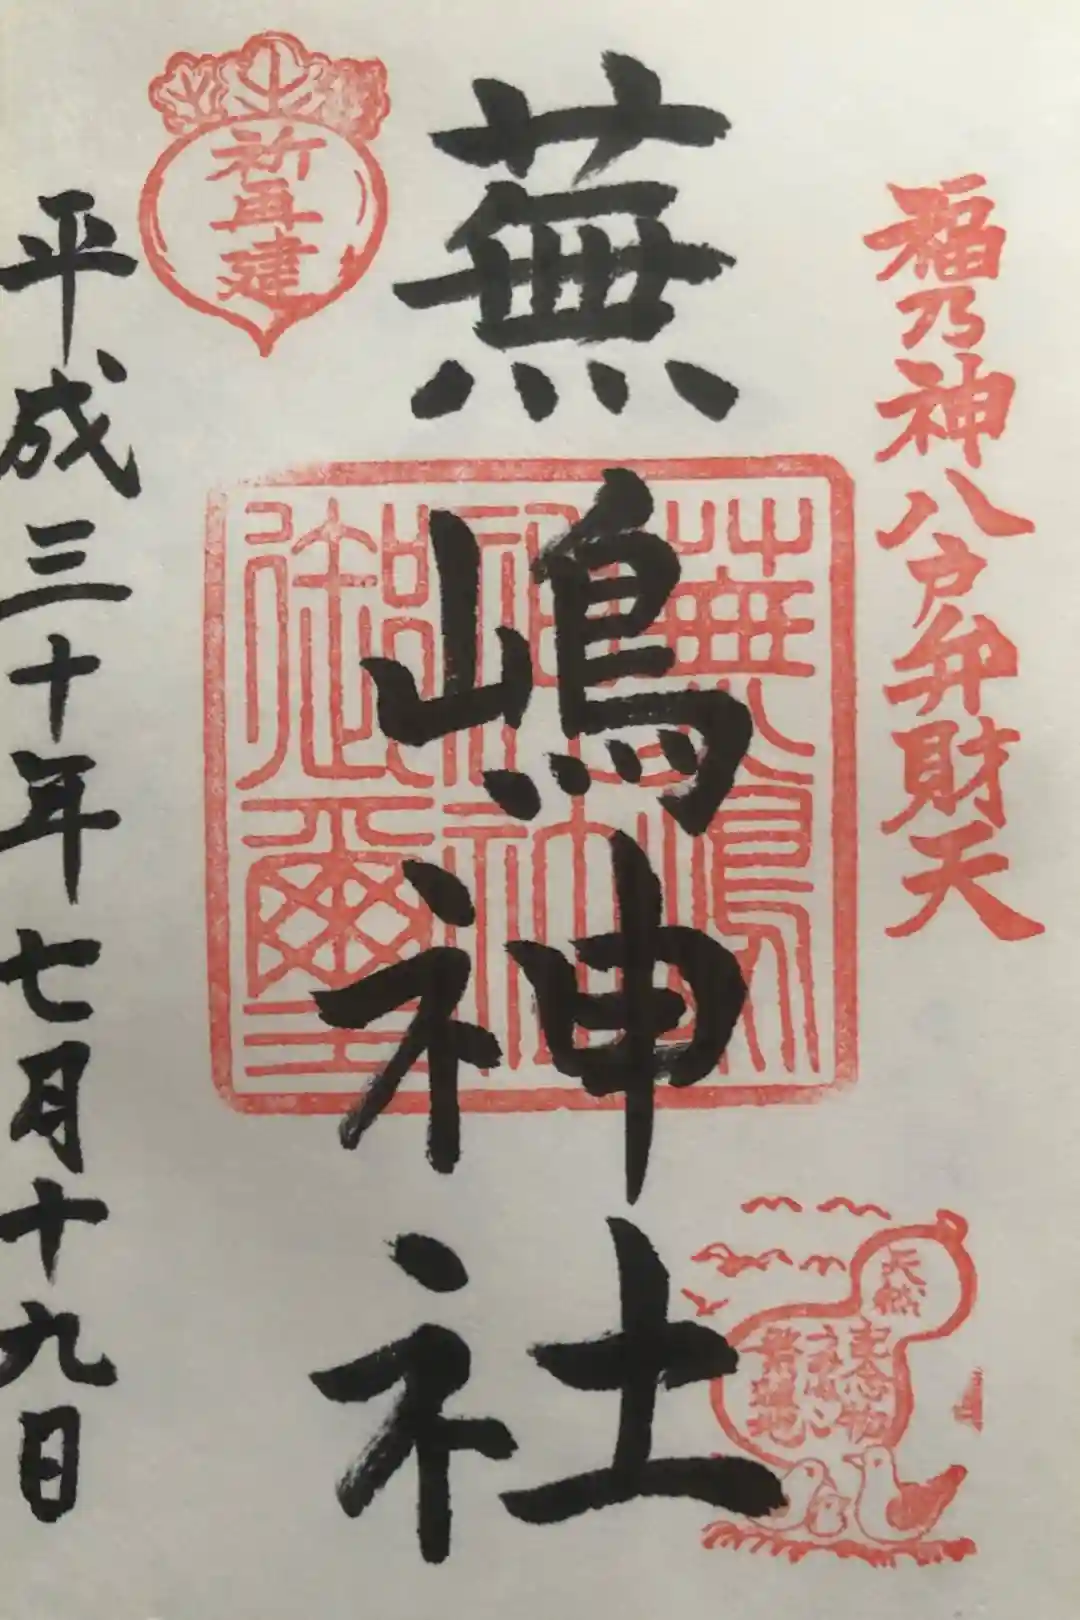 福乃神八戸弁財天
蕪嶋神社
蕪嶋神社御璽
祈再建
平成三十年七月十九日
天然
記念物
うみねこ
蕃殖地